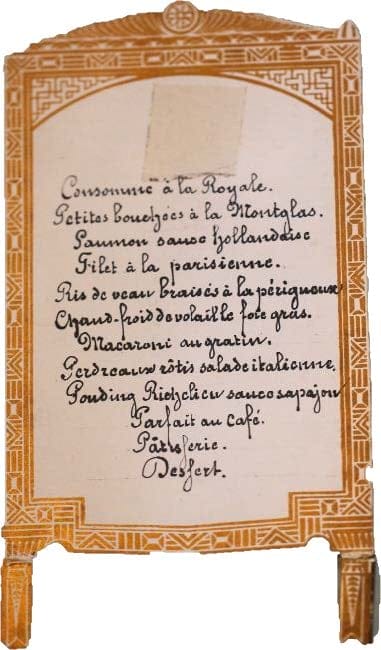 Consommé à la Royale.
Petites bouchées à la Montglas.
Saumon sauce hollandaise
Filet à la parisienne.
Ris de veau braisés à la périgueux
Chaud-froid de volaille foie gras.
Macaroni au gratin.
Perdreaux rôtis salade italienne.
Pouding Richelieu sauce sapajou
Parfait au Café.
Pâtisserie.
Dessert.